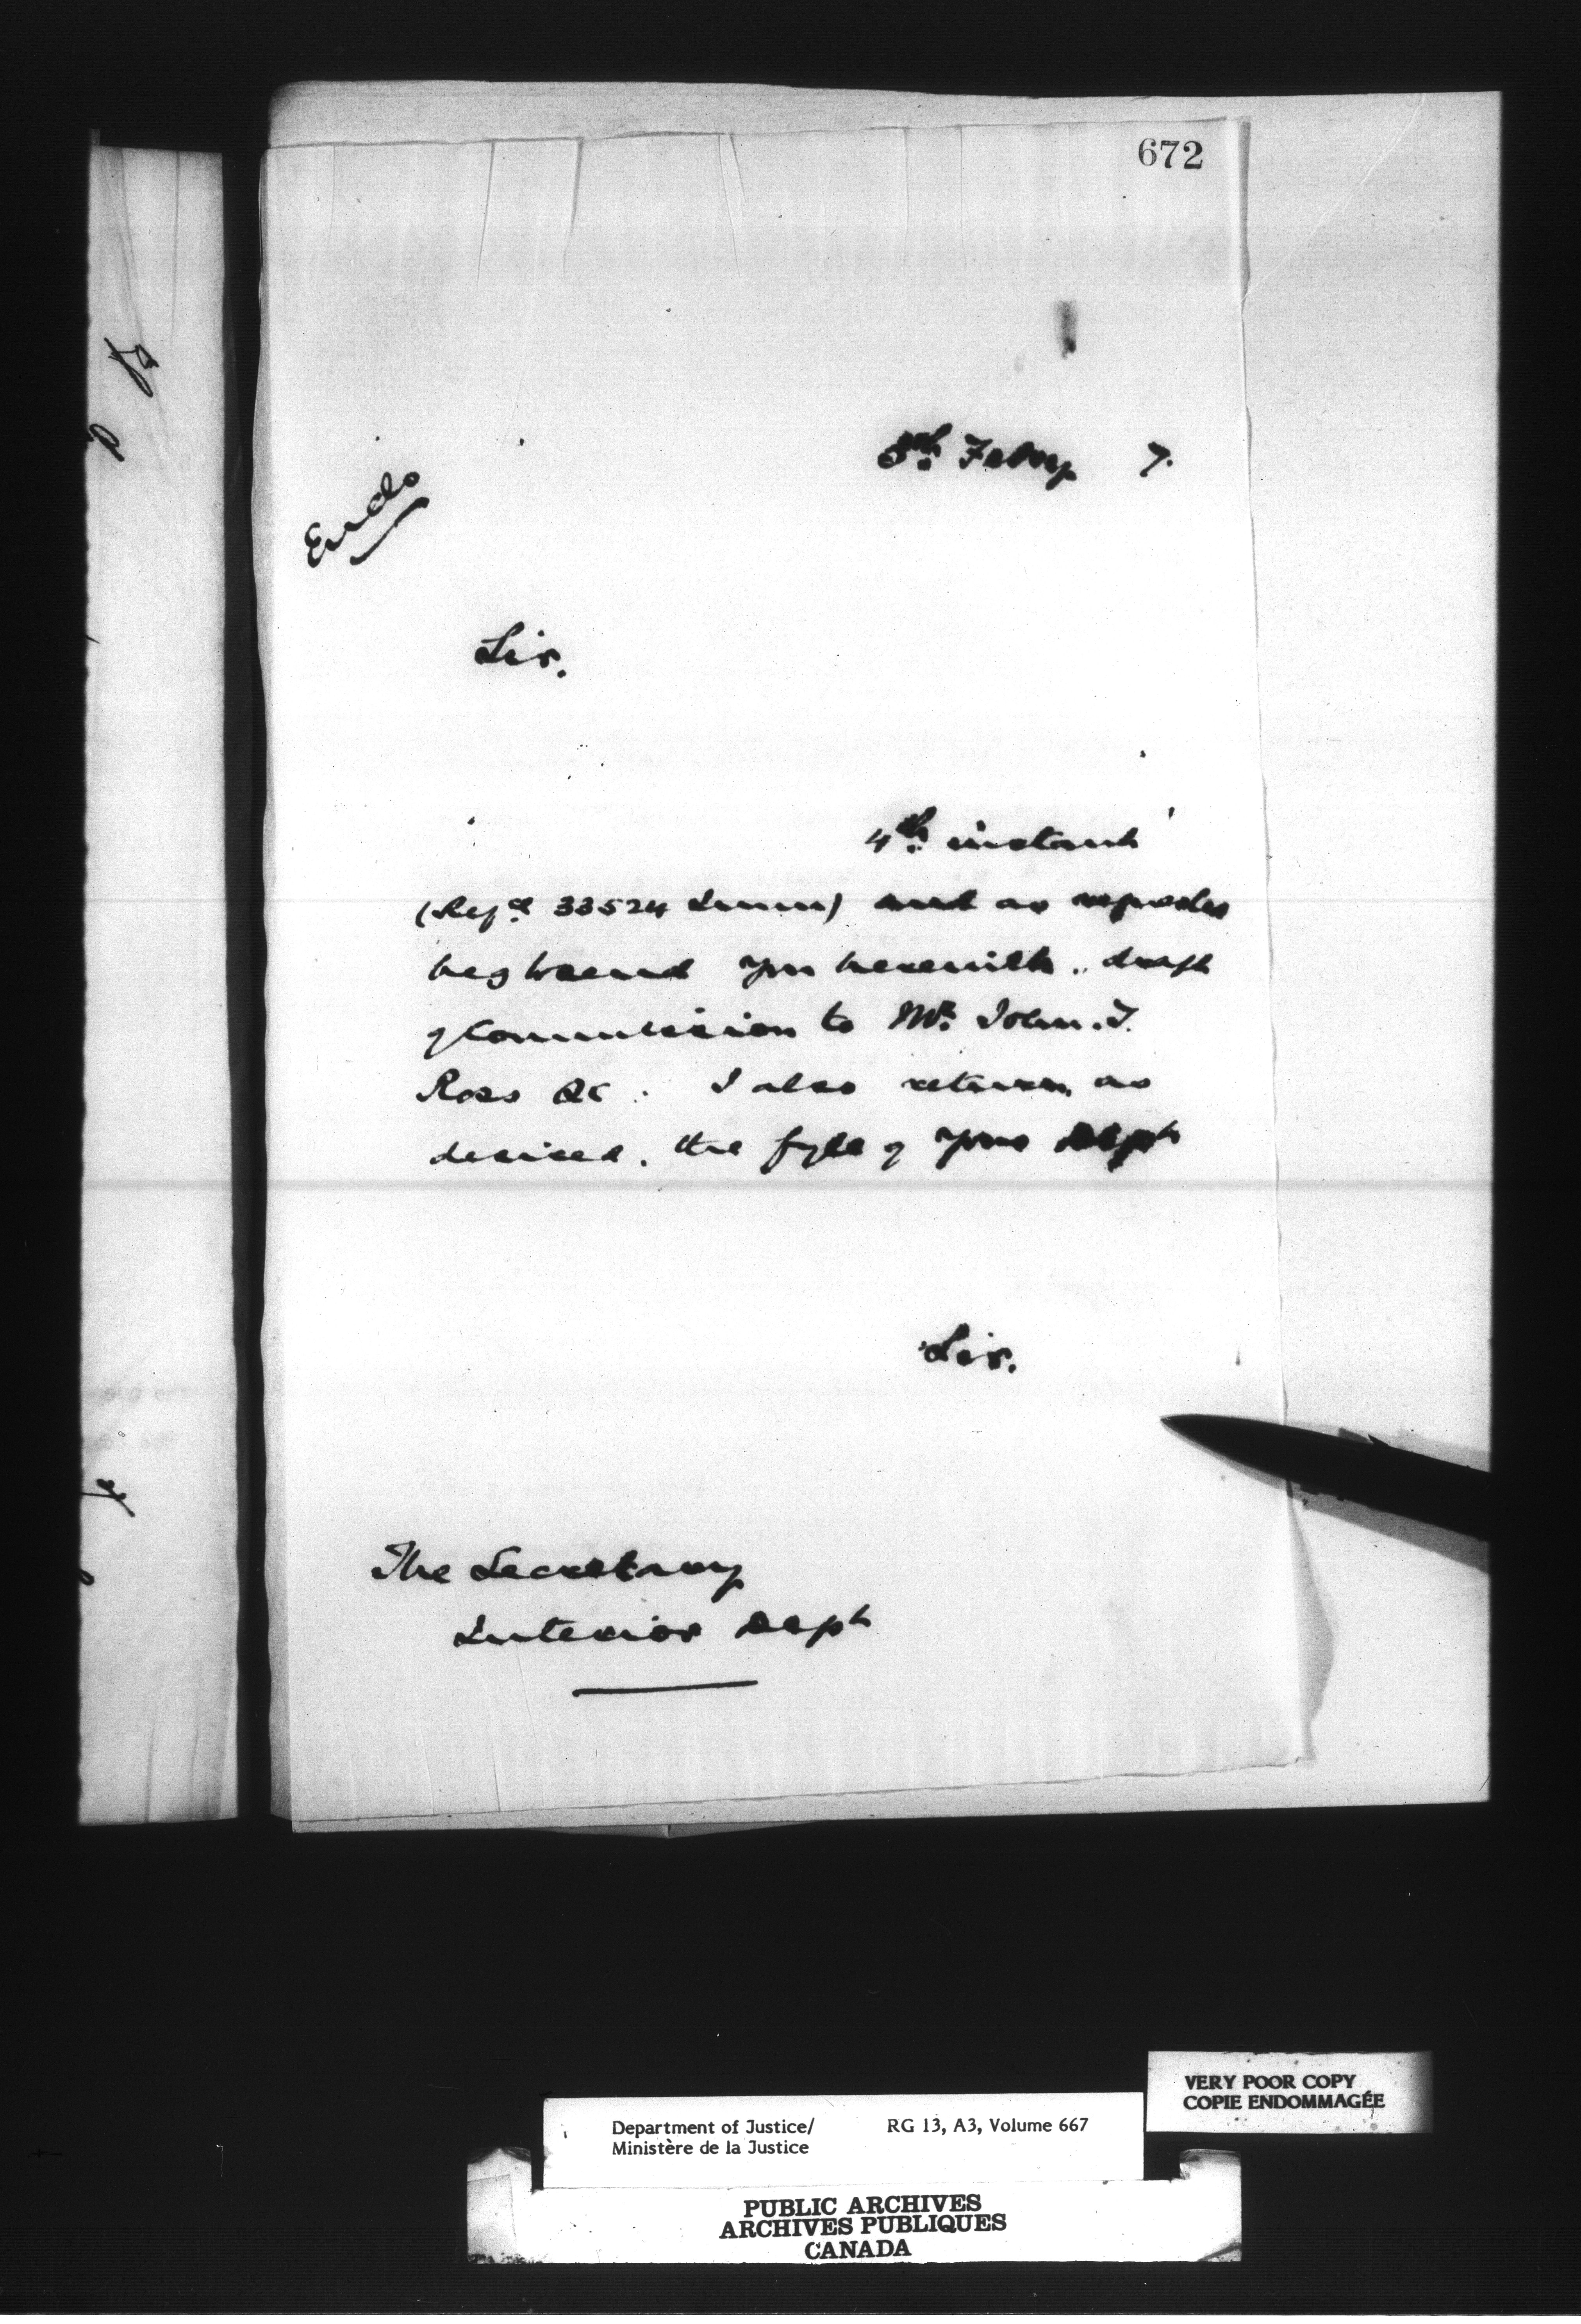 672
8th. Feby 7.
Enclo
Sir.
4th. instant
(Regd 33524 Imm) and as requested
beg to send you herewith, draft
of Commission to Mr. John. T.
Ross QC. I also return, as
desired, the fyle of your Dept
Sir.
The Secretary
Interior Dept
VERY POOR COPY
COPIE ENDOMMAGÉE
Department of Justice/ RG 13, A3, Volume 667
Ministère de la Justice
PUBLIC ARCHIVES
ARCHIVES PUBLIQUES
CANADA